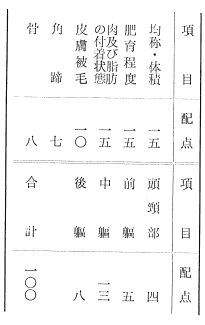 項目 配点 項目 配点
均称・体積 一五 頭頸部 四
肥育程度 一五 前軀 五
肉及び脂肪
の付着状態 一五 中軀 一三
皮膚被毛 一〇 後軀 八
角蹄 七
骨 八 合計 一〇〇